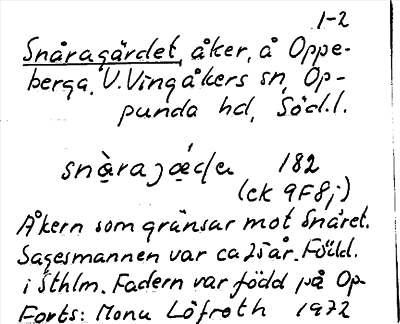 1-2
Snåragärdet, åker, å Oppe-
berga, V. Vingåkers sn, Op-
punda hd, Södl.
182
(ek 9F8j)
Åkern som gränsar mot Snåret.
Sagesmannen var ca 25 år. Född
i Sthlm. Fadern var född på Op-
Forts: Mona Löfroth 1972